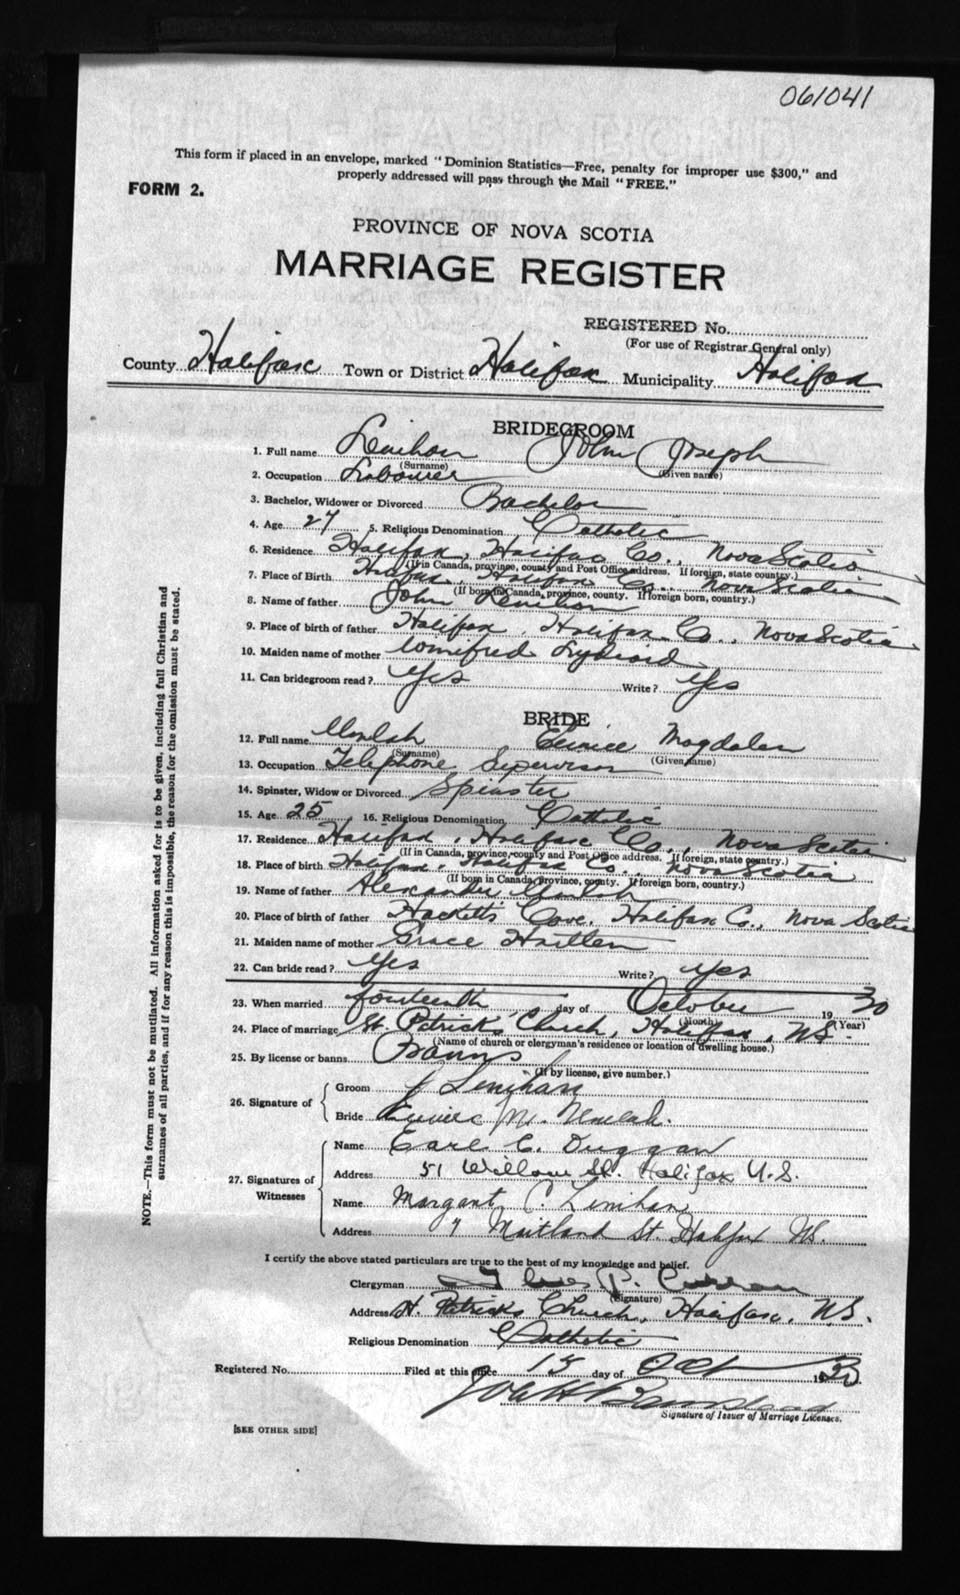 061041
This form if placed in an envelope, marked "Dominion Statistics—Free, penalty for improper use $300," and
properly addressed will pass through the Mail "FREE."
FORM 2.
PROVINCE OF NOVA SCOTIA
MARRIAGE REGISTER
REGISTERED No.
(For use of Registrar General only)
County Halifax Town or District Halifax Municipality Halifax
BRIDEGROOM
1. Full name Lenihan John Joseph
(Surname) (Given name)
2. Occupation Labourer
3. Bachelor, Widower or Divorced Bachelor
4. Age 27 5. Religious Denomination Catholic
6. Residence Halifax, Halifax Co., Nova Scotia
(If in Canada, province, county and Post Office address. If foreign, state country.)
7. Place of Birth Halifax, Halifax Co., Nova Scotia
(If born in Canada, province, county. If foreign born, country.)
8. Name of father John Lenihan
9. Place of birth of father Halifax, Halifax Co., Nova Scotia
10. Maiden name of mother Winifred
11. Can bridegroom read? Yes Write? Yes
BRIDE
12. Full name Eunice Magdalen
(Surname) (Given name)
13. Occupation Telephone Supervisor
14. Spinster, Widow or Divorced Spinster
15. Age 25 16. Religious Denomination Catholic
17. Residence Halifax, Halifax Co., Nova Scotia
(If in Canada, province, county and Post Office address. If foreign, state country.)
18. Place of birth Halifax, Halifax Co., Nova Scotia
(If born in Canada, province, county. If foreign born, country.)
19. Name of father Alexander
20. Place of birth of father Hacketts Cove, Halifax Co., Nova Scotia
21. Maiden name of mother Grace
22. Can bride read? Yes Write? Yes
23. When married fourteenth day of October 1930
(Month) (Year)
24. Place of marriage St. Patricks Church, Halifax, N.S.
(Name of church or clergyman's residence or location of dwelling house.)
25. By license or banns Banns
(If by license, give number.)
26. Signature of
Groom J Lenihan
Bride Eunice M.
27. Signatures of Witnesses
Name Earl C. Duggan
Address 51 Willow St. Halifax N.S.
Name Margaret C. Lenihan
Address 7 Maitland St. Halifax NS.
I certify the above stated particulars are true to the best of my knowledge and belief.
Clergyman P.
(Signature)
Address St. Patricks Church, Halifax, N.S.
Religious Denomination Catholic
Registered No. Filed at this office 15 day of Oct 1930
Signature of Issuer of Marriage Licenses.
[SEE OTHER SIDE]
NOTE.—This form must not be mutilated. All information asked for is to be given, including full Christian and
surnames of all parties, and if for any reason this is impossible, the reason for the omission must be stated.